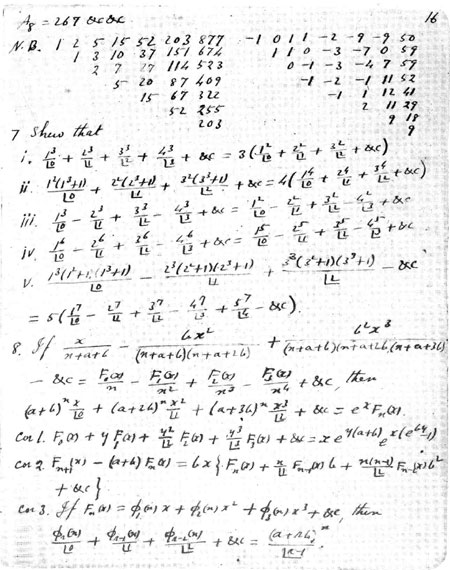 A₈ = 267 &c &c 16
N.B. 1 2 5 15 52 203 877 -1 0 1 1 -2 -9 -9 50
1 3 10 37 151 674 1 1 0 -3 -7 0 59
2 7 27 114 523 0 -1 -3 -4 7 59
5 20 87 409 -1 -2 -1 11 52
15 67 322 -1 1 12 41
52 255 2 11 29
203 9 18
9
7 Shew that
i. 1³/⌊0 + 2³/⌊1 + 3³/⌊2 + 4³/⌊3 + &c = 3(1²/⌊0 + 2²/⌊1 + 3²/⌊2 + &c)
ii. 1²(1³+1)/⌊0 + 2²(2³+1)/⌊1 + 3²(3³+1)/⌊2 + &c = 4(1⁴/⌊0 + 2⁴/⌊1 + 3⁴/⌊2 + &c)
iii. 1³/⌊0 - 2³/⌊1 + 3³/⌊2 - 4³/⌊3 + &c = 1²/⌊0 - 2²/⌊1 + 3²/⌊2 - 4²/⌊3 + &c
iv. 1⁶/⌊0 - 2⁶/⌊1 + 3⁶/⌊2 - 4⁶/⌊3 + &c = 1⁵/⌊0 - 2⁵/⌊1 + 3⁵/⌊2 - 4⁵/⌊3 + &c
v. 1³(1²+1)(1³+1)/⌊0 - 2³(2²+1)(2³+1)/⌊1 + 3³(3²+1)(3³+1)/⌊2 - &c
= 5(1⁷/⌊0 - 2⁷/⌊1 + 3⁷/⌊2 - 4⁷/⌊3 + 5⁷/⌊4 - &c).
8. If x/(n+a+b) - bx²/((n+a+b)(n+a+2b)) + b²x³/((n+a+b)(n+a+2b)(n+a+3b))
- &c = F₀(x)/n - F₁(x)/n² + F₂(x)/n³ - F₃(x)/n⁴ + &c, then
(a+b)ⁿ x/⌊0 + (a+2b)ⁿ x²/⌊1 + (a+3b)ⁿ x³/⌊2 + &c = eˣ Fₙ(x).
Cor 1. F₀(x) + y F₁(x) + y²/⌊2 F₂(x) + y³/⌊3 F₃(x) + &c = x e^{y(a+b)} e^{x(e^{by}-1)}
Cor 2. Fₙ₊₁(x) - (a+b) Fₙ(x) = bx{Fₙ(x) + n/⌊1 Fₙ₋₁(x) b + n(n-1)/⌊2 Fₙ₋₂(x) b²
+ &c}
Cor 3. If Fₙ(x) = φ₁(n) x + φ₂(n) x² + φ₃(n) x³ + &c, then
φᵣ(n)/⌊0 + φᵣ₋₁(n)/⌊1 + φᵣ₋₂(n)/⌊2 + &c = (a+rb)ⁿ/⌊r-1.